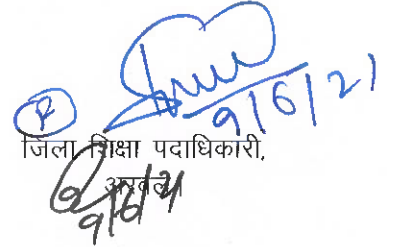 9/6/21
जिला शिक्षा पदाधिकारी,
अरवल।
9/6/21